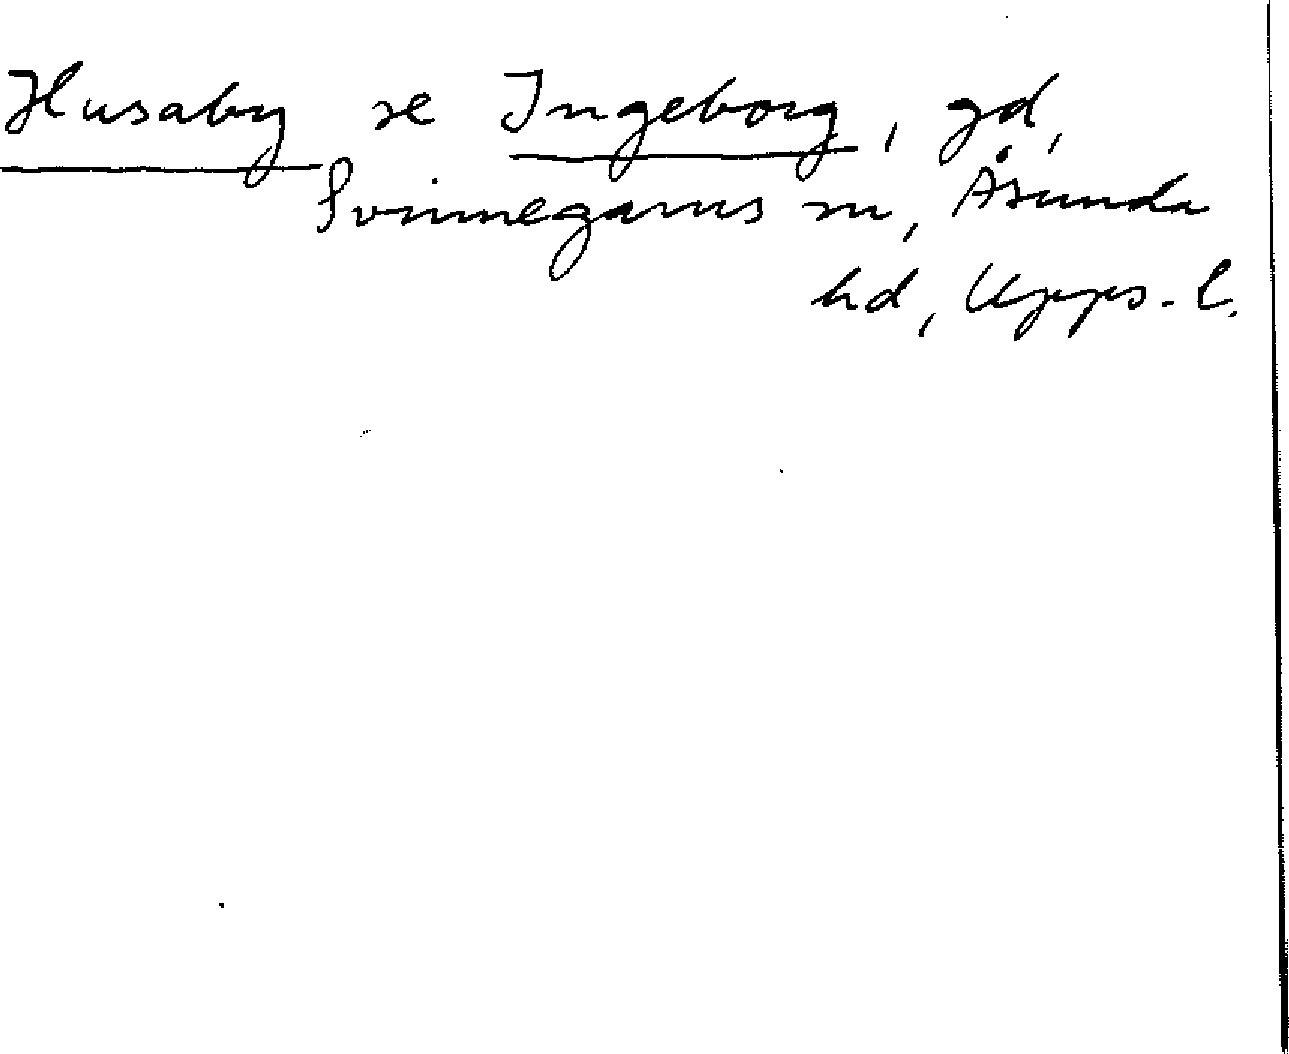 Husaby se Ingeborg, gd,
Svinnegarns sn, Åsunda
hd, Upps. l.